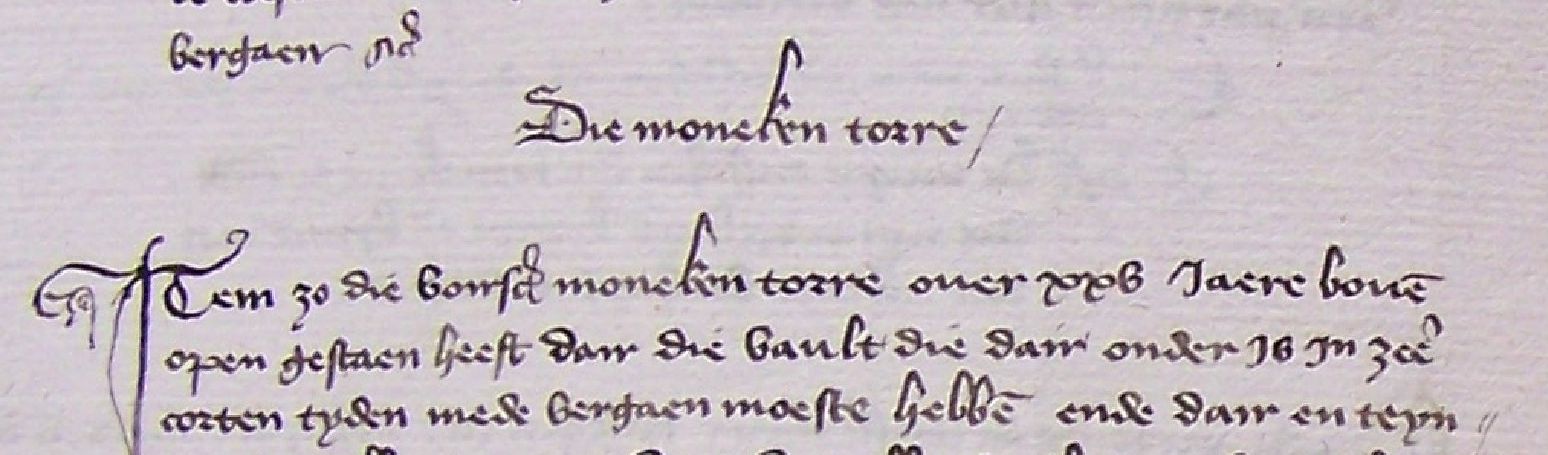 vergaen etc
Die moncken torre /
Item zo die voirscr moncken torre over xxv Jaere boven
open gestaen heeft dair die vault die dair onder is in zee
corten tyden mede vergaen moeste hebben ende dair en teyn //